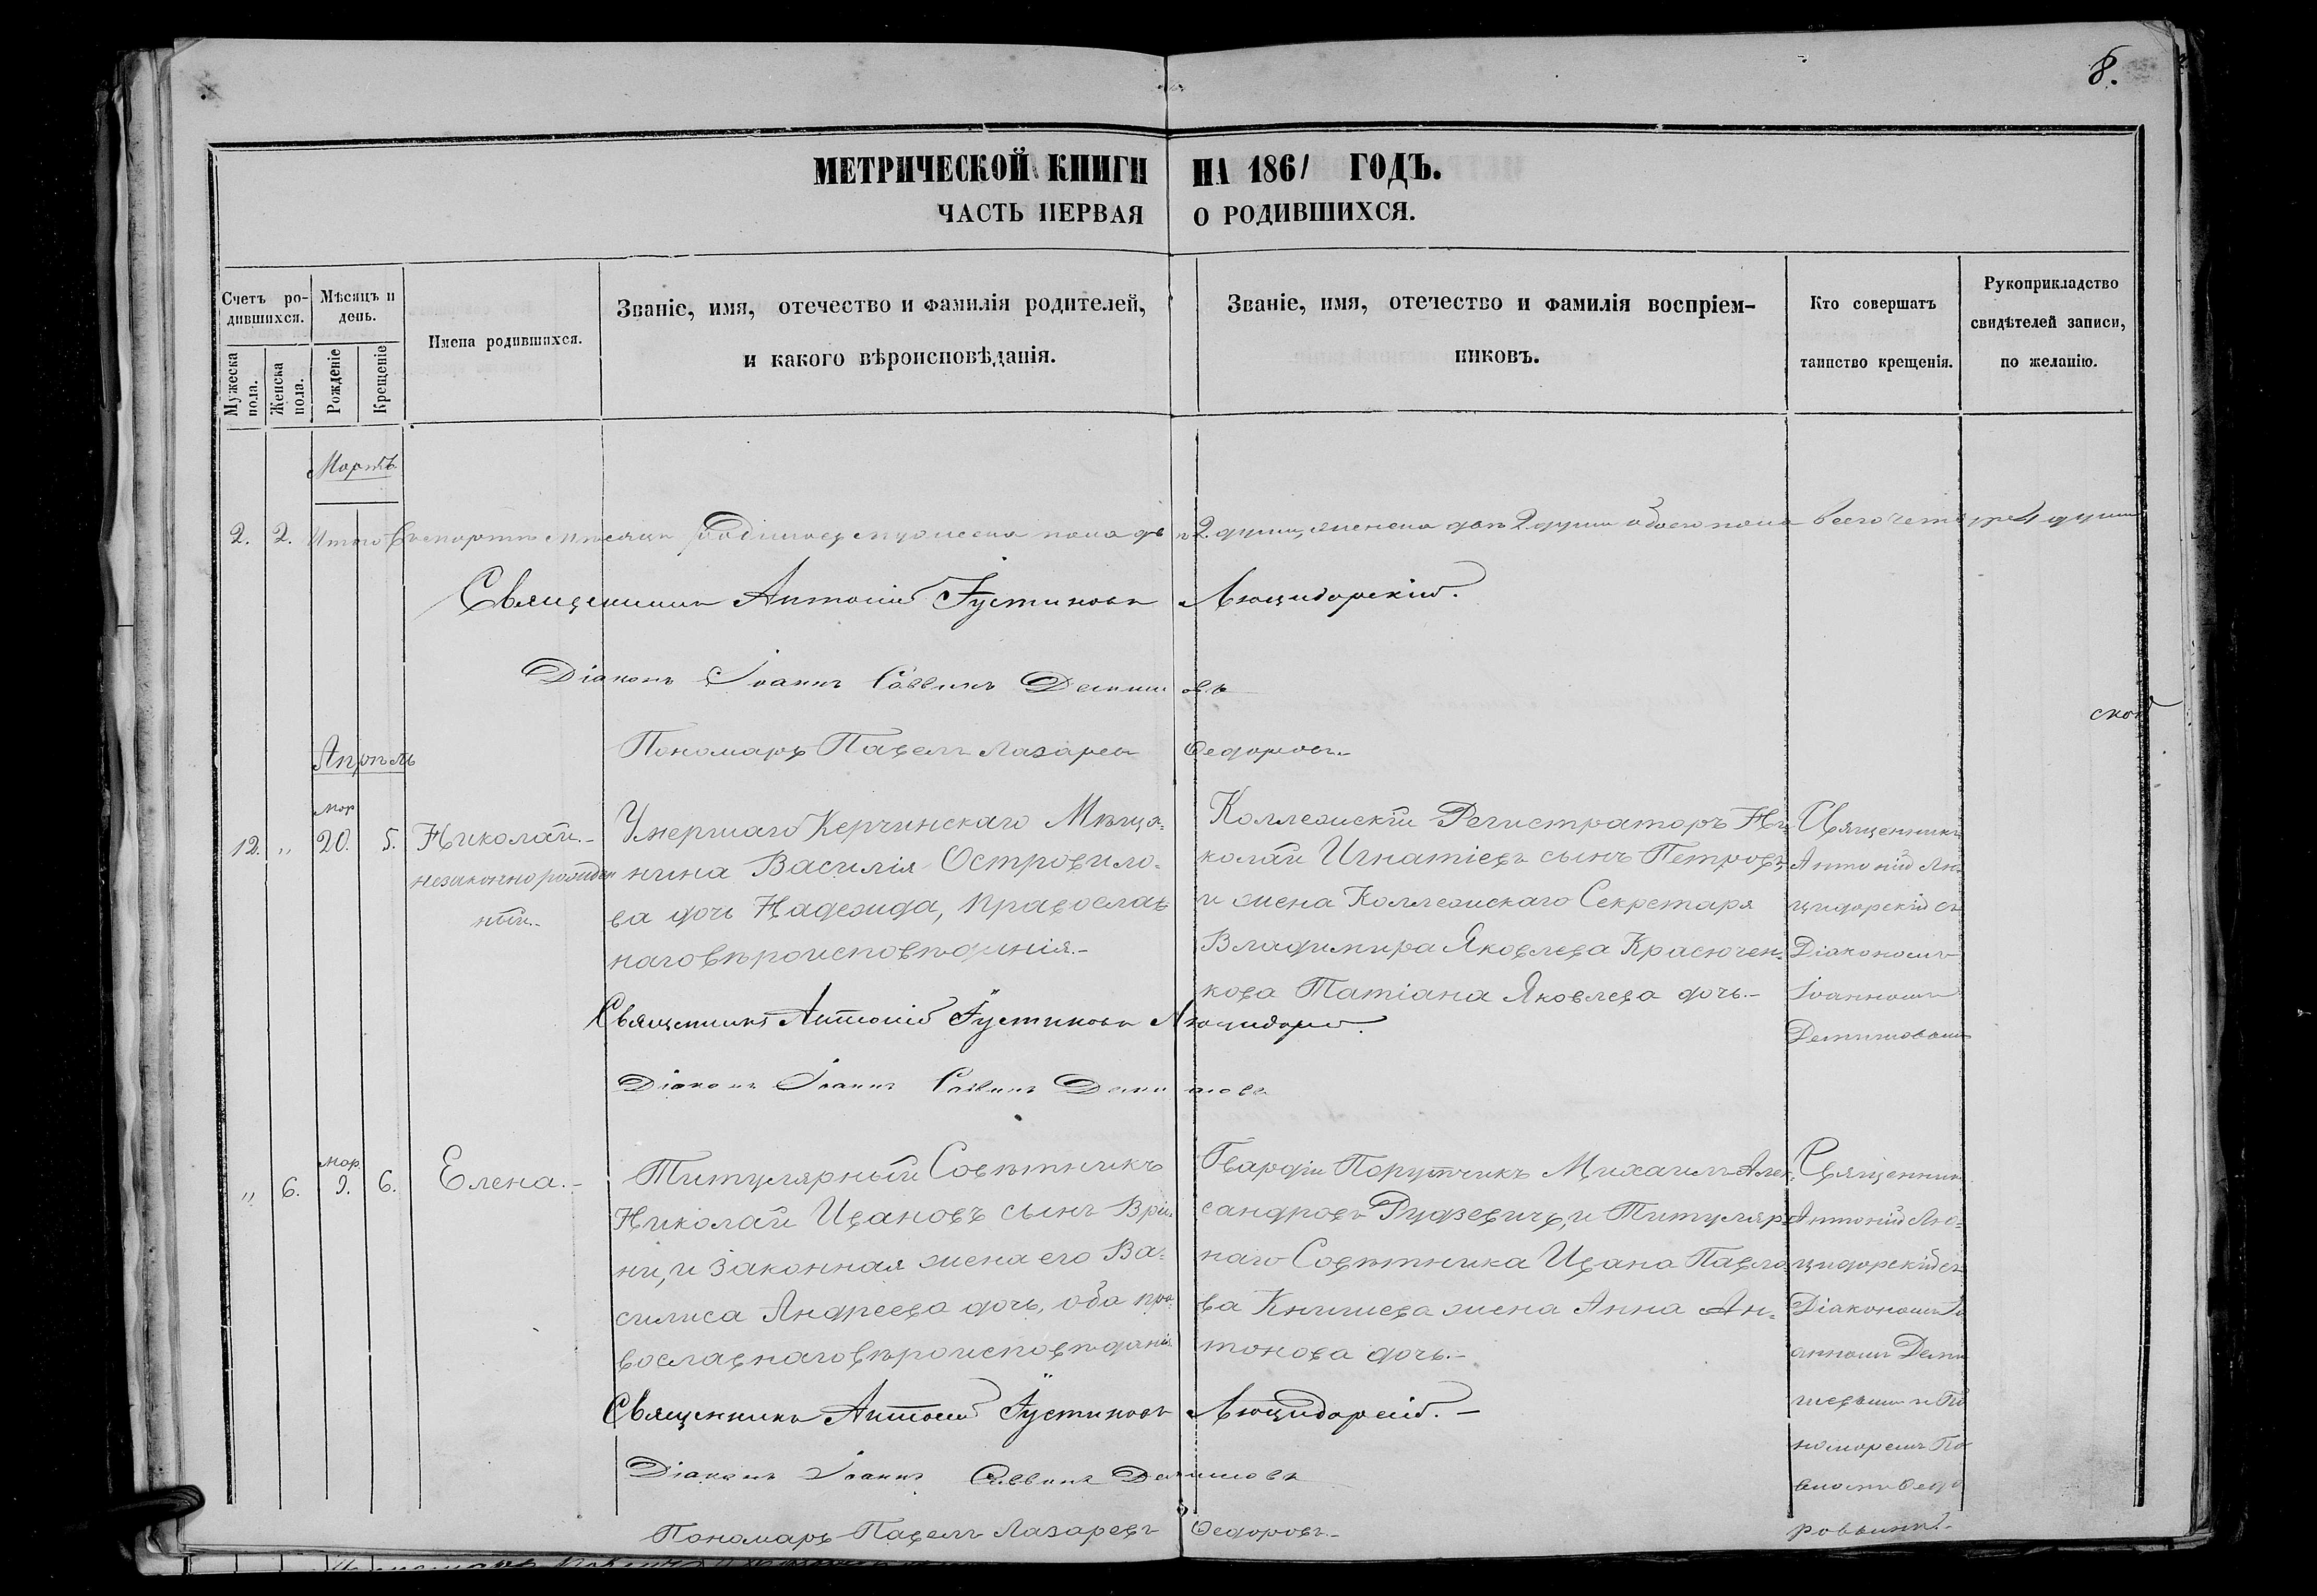 8.
МЕТРИЧЕСКОЙ КНИГИ НА 1861 ГОДЪ.
ЧАСТЬ ПЕРВАЯ О РОДИВШИХСЯ.
Счетъ ро-
дившихся.
Мужеска
пола.
Женска
пола.
Мѣсяцъ и
день.
Рожденіе
Крещеніе
Имена родившихся.
Званіе, имя, отечество и фамилія родителей,
и какого вѣроисповѣданія.
Званіе, имя, отечество и фамилія воспріем-
никовъ.
Кто совершатъ
таинство крещенія.
Рукоприкладство
свидѣтелей записи,
по желанію.
Мартъ
2. 2. Итого въ мартѣ мѣсяцѣ родилось мужеска пола двѣ 2 души, женска двѣ 2 души обоего пола всего четыре 4 души
Священникъ Антоній Іустиновъ Люцидарскій.
Діаконъ Іоаннъ Саввинъ
Пономарь Павелъ Лазаревъ Федоровъ.
Апрѣль
мар
12. „ 20. 5.
Николай.-
незаконнорожден
ный.-
Умершаго Керчинскаго Мѣща-
нина Василія Островило-
ва дочь Надежда, православ
наго вѣроисповѣданія.-
Коллежскій Регистраторъ Ни-
колай Игнатіевъ сынъ Петровъ,
и жена Коллежскаго Секретаря
Владимира Яковлева Красючен-
кова Татіана Яковлева дочь.-
Священникъ
Антоній Лю-
цидарскій съ
Діакономъ
Іоанномъ
Священникъ Антоній Іустиновъ
Діаконъ Іоаннъ Саввинъ
мар.
„ 6. 9. 6.
Елена.-
Титулярный Совѣтникъ
Николай Ивановъ сынъ Врі-
ни, и законная жена его Ва-
силиса Андреева дочь, оба пра-
вославнаго вѣроисповѣданія
Гвардіи Поручикъ Михаилъ Алек-
сандровъ Рудзевичъ, и Титуляр-
наго Совѣтника Ивана Павло-
ва Книшева жена Анна Ан-
тонова дочь.-
Священникъ
Антоній Лю-
цидарскій съ
Діакономъ Іо
анномъ
и По
номаремъ Па
вломъ Федо
ровымъ.-
Священникъ Антоній Іустиновъ Люцидарскій.-
Діаконъ Іоаннъ Саввинъ
Пономарь Павелъ Лазаревъ Федоровъ.-